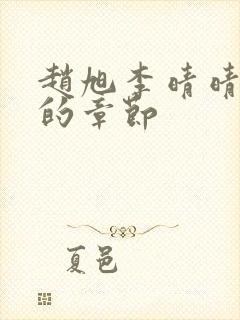 趙旭李晴晴
的章節
夏邑